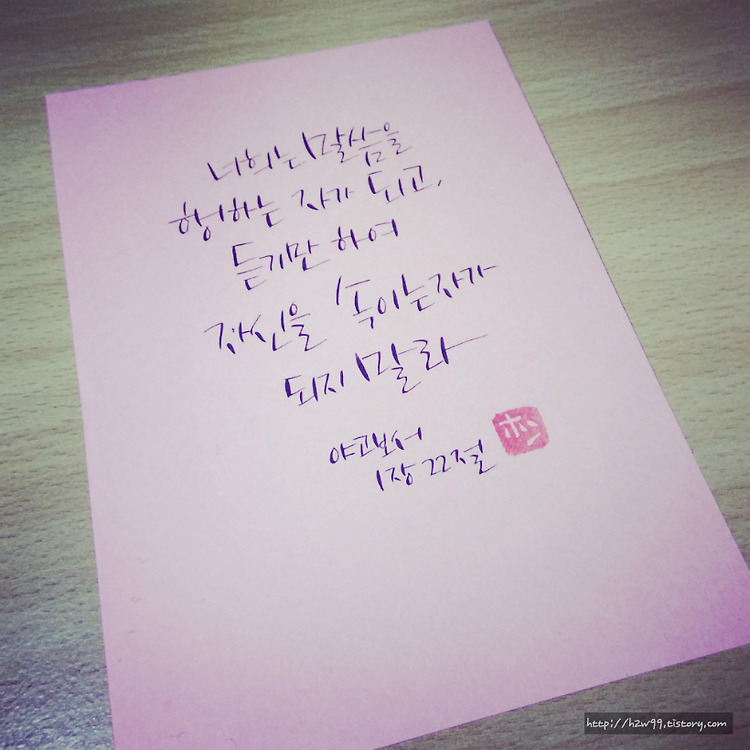 너희는 말씀을
행하는 자가 되고,
듣기만 하여
자신을 속이는 자가
되지 말라
야고보서
1장 22절
http://h2w99.tistory.com